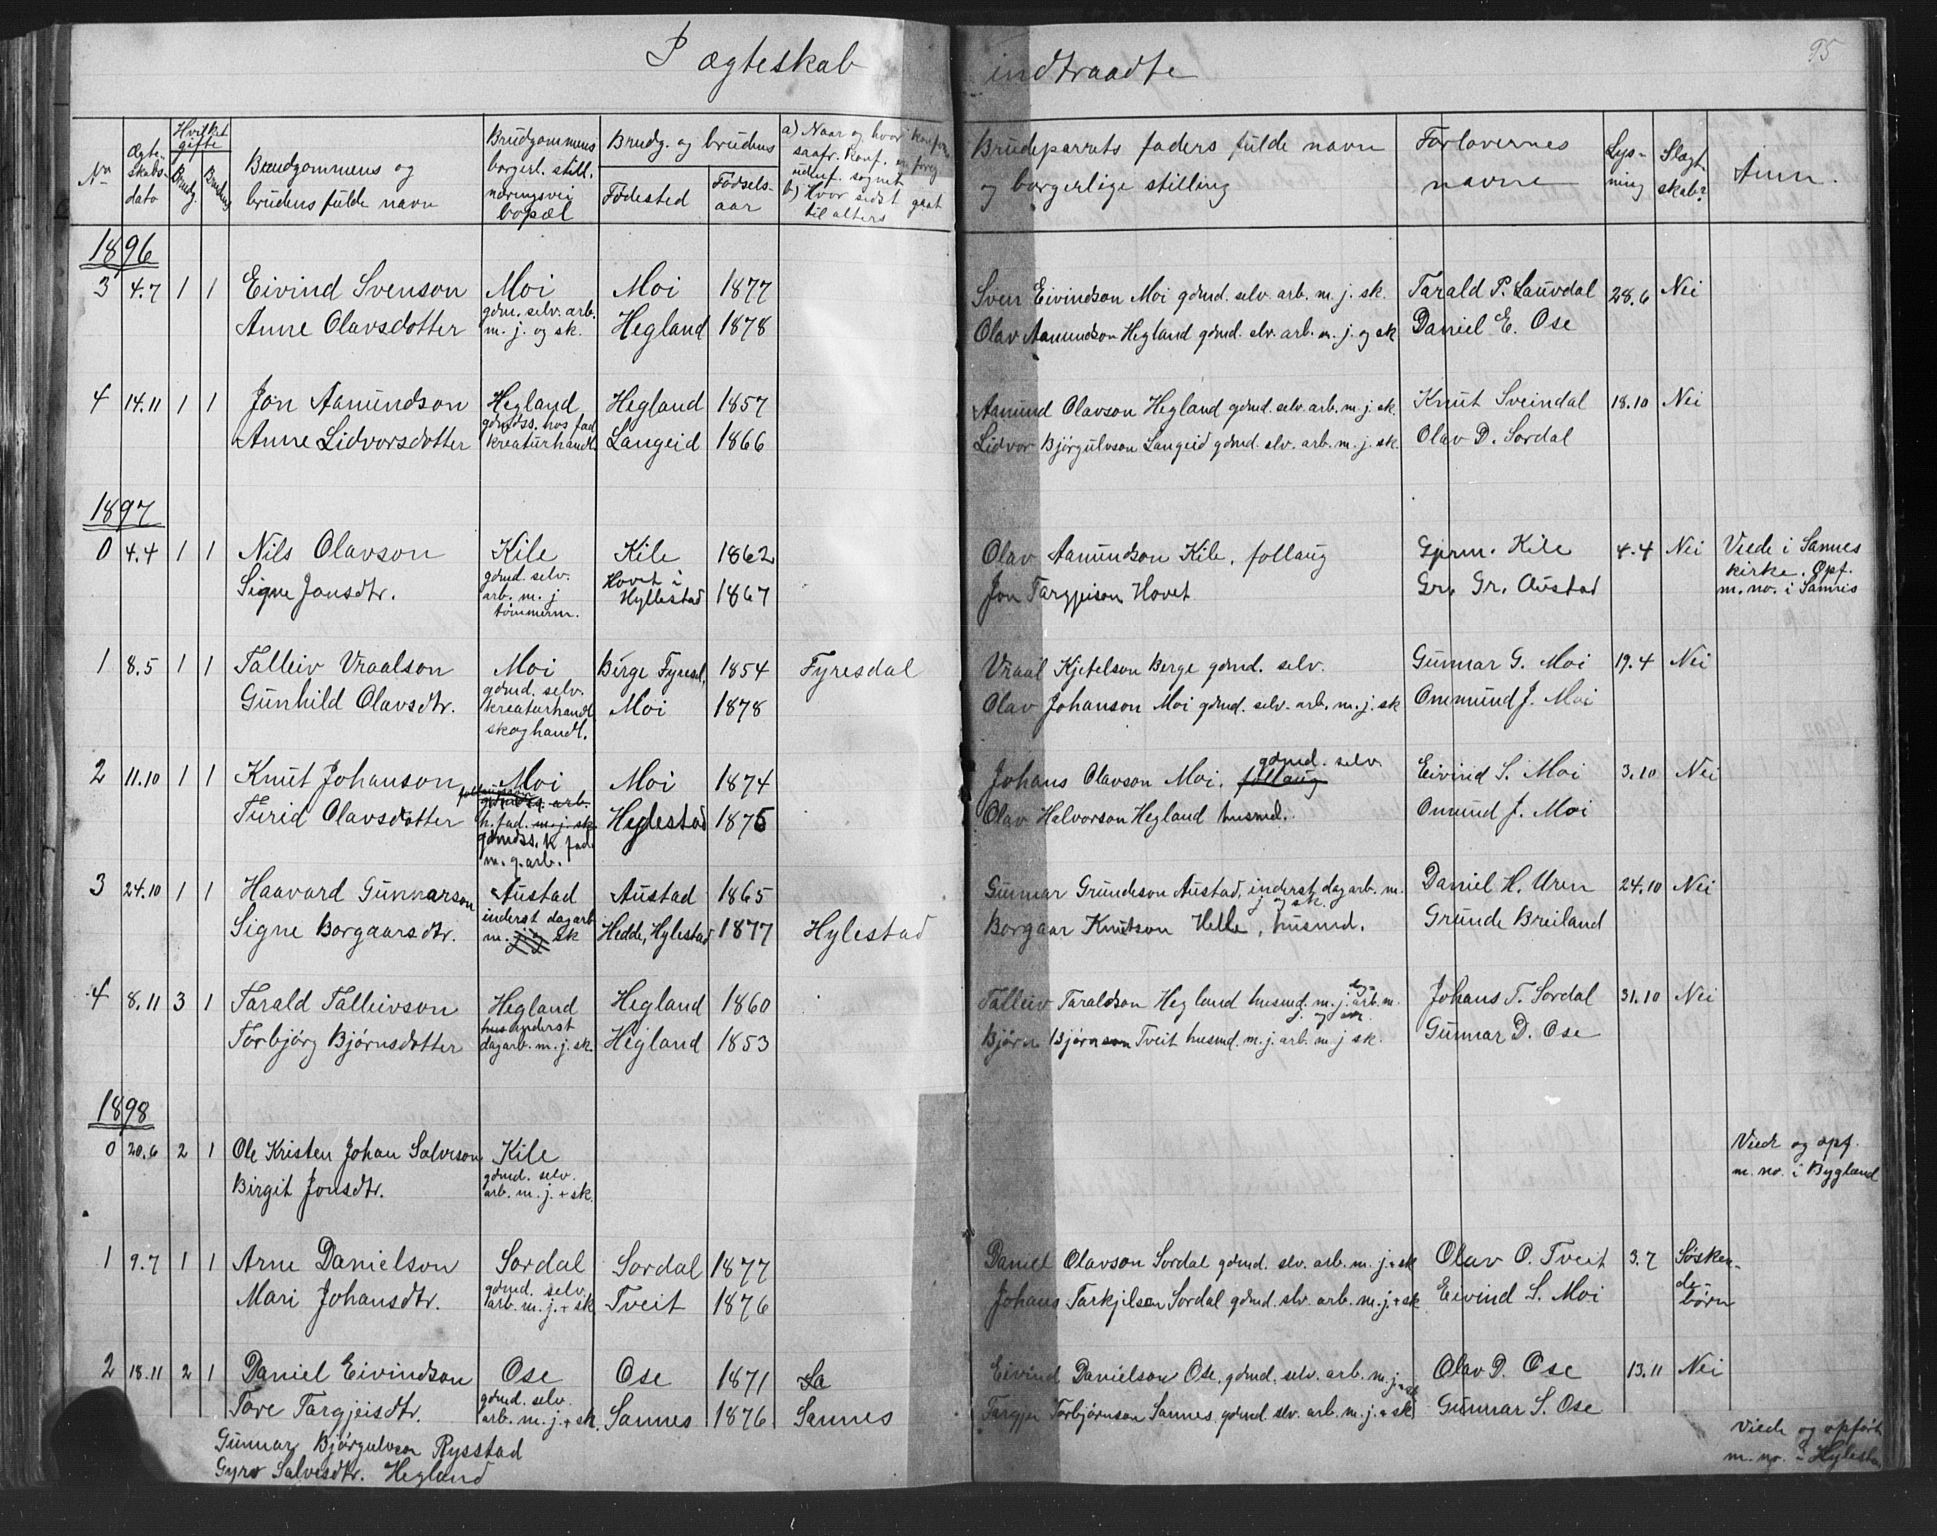 I ægteskab indtraadte
95
No
Ægte-
skabs-
dato
Hvilket
gifte
Brudg.
Bruden
Brudgommens og
brudens fulde navn
Brudgommens
borgerl. still.
næringsvei
bopæl
Brudg. og brudens
Fødested
Fødsels-
aar
a) Naar og hvor konf.
saafr. konf. en foreg
udenf. sognet
b) Hvor sidst gaat
til alters
Brudeparrets faders fulde navn
og borgerlige stilling
Forlovernes
navne
Lys-
ning
Slægt
skab?
Anm.
1896
3 4.7 1 1 Eivind Svenson Moi Moi 1877 Sven Eivindson Moi gdmd. selv. arb. m. j. sk. Tarald P. Lauvdal 28.6 Nei
gdm. selv. arb.
Anne Olavsdotter m. j. og sk. Hegland 1878 Olav Aamundson Hegland gdmd. selv. arb. m. j. og sk Daniel E. Ose
4 14.11 1 1 Jon Aamundson Hegland Hegland 1857 Aamund Olavson Hegland gdmd. selv. arb. m. j. sk. Knut Sveindal 18.10 Nei
gdmdss. hos fad
Anne Lidvorsdotter kreaturhandl. Langeid 1866 Lidvor Bjørgulvson Langeid gdmd. selv. arb. m. j. sk. Olav D. Sordal
1897
0 4.4 1 1 Nils Olavson Kile Kile 1862 Olav Aamundson Kile, follaug Gjerm. Kile 4.4 Nei Viede i Sannes
gdmd. selv. Hovet i kirke. Opf.
Signe Jonsdtr. arb. m. j Hyllestad 1867 Jon Targjeison Hovet Gr. Gr. Austad m. no. i Sannes
tømmerm.
1 8.5 1 1 Talleiv Vraalson Moi Berge Fyresd. 1854 Fyresdal Vraal Kjetelson Berge gdmd. selv. Gunnar G. Moi 19.4 Nei
gdmd. selv.
Gunhild Olavsdtr. kreaturhandl. Moi 1878 Olav Johanson Moi gdmd. selv. arb. m. j. sk Ommund J. Moi
skoghandl.
gdmd. selv.
2 11.10 1 1 Knut Johanson Moi Moi 1874 Johans Olavson Moi. follaug Eivind S. Moi 3.10 Nei
gdmdss. arb.
Turid Olavsdotter h. fad. m. j. sk. Hylestad 1875 Olav Halvorson Hegland husmd. Omund J. Moi
gdmdss. h. fad.
m. g. arb.
3 24.10 1 1 Haavard Gunnarson Austad Austad 1865 Gunnar Grundeson Austad, inderst dagarb. m. Daniel H. Uren 24.10 Nei
inderst dagarb j og sk.
Signe Borgaarsdtr. m. j. og sk Hedde, Hylestad 1877 Hylestad Borgaar Knutson Helle, husmd. Grunde Breiland
4 8.11 3 1 Tarald Talleivson Hegland Hegland 1860 Talleiv Taraldson Hegland husmd. m. j. arb. m. Johans T. Sordal 31.10 Nei
inderst j. og sk
Torbjørg Bjørnsdotter dagarb. m. j. sk. Hegland 1853 Bjørn Bjørnson Tveit husmd. m. j. arb. m. j sk. Gunnar D. Ose
1898
0 20.6 2 1 Ole Kristen Johan Salveson Kile Viede og opf.
gdmd. selv. m. no. i Bygland
Birgit Jonsdtr. arb. m. j. + sk.
1 9.7 1 1 Arne Danielson Sordal Sordal 1877 Daniel Olavson Sordal gdmd. selv. arb. m. j. + sk Olav O. Tveit 3.7 Søsken-
gdmd. selv. de-
Mari Johansdtr. arb. m. j. + sk Tveit 1876 Johans Tarkjelson Sordal gdmd. slv. arb. m. j. + sk Eivind S. Moi børn
2 18.11 2 1 Daniel Eivindson Ose Ose 1871 Eivind Danielson Ose, gdmd. selv. arb. m. j. + sk Olav D. Ose 13.11 Nei
gdmd. selv.
Tore Targjeisdtr. arb. m. j. + sk. Sannes 1876 Sannes Targjei Torbjørnson Sannes, gdmd. selv. arb. m. j. + sk Gunnar S. Ose
Gunnar Bjørgulvson Rysstad Viede og opført
Gyro Salvesdtr. Hegland m. no. i Hylesta